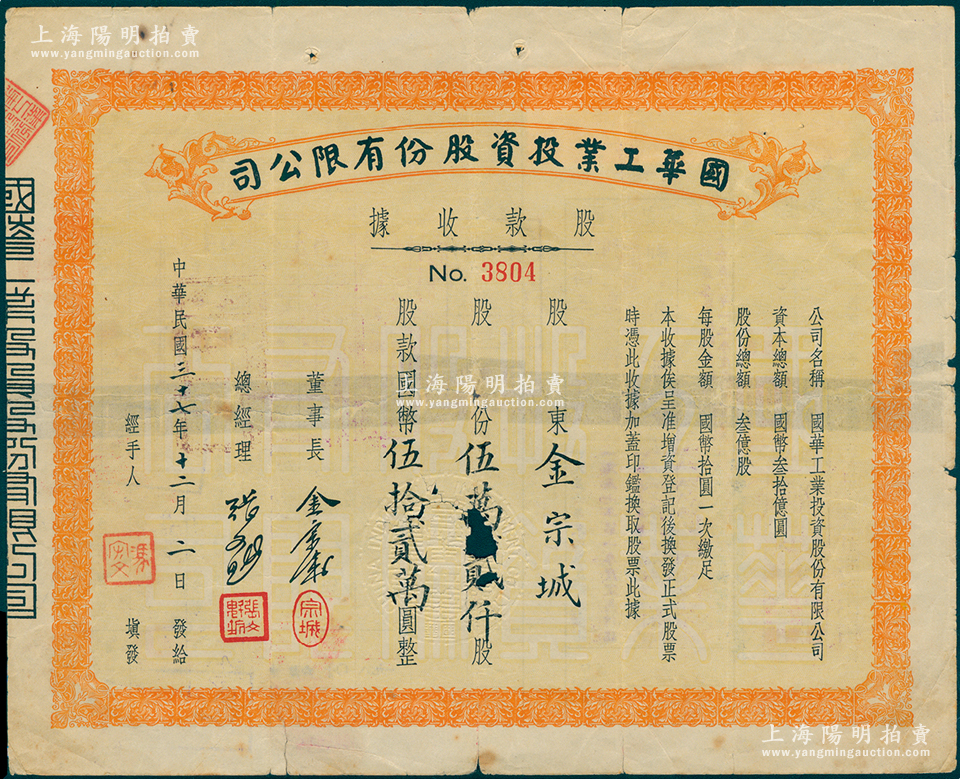 上海陽明拍賣
www.yangmingauction.com
上海陽明拍賣
www.yangmingauction.com
國華工業投資股份有限公司
股款收據
No. 3804
公司名稱 國華工業投資股份有限公司
資本總額 國幣叁拾億圓
股份總額 叁億股
每股金額 國幣拾圓一次繳足
本收據俟呈准增資登記後換發正式股票
時憑此收據加蓋印鑑換取股票此據
股東 金宗城
股份 伍萬貳仟股
股款國幣伍拾貳萬圓整
董事長 金宗城
宗城
總經理
張文魁印
中華民國三十七年十二月二日 發給
經手人 填發
上海陽明拍賣
www.yangmingauction.com
上海陽明拍賣
www.yangmingauction.com